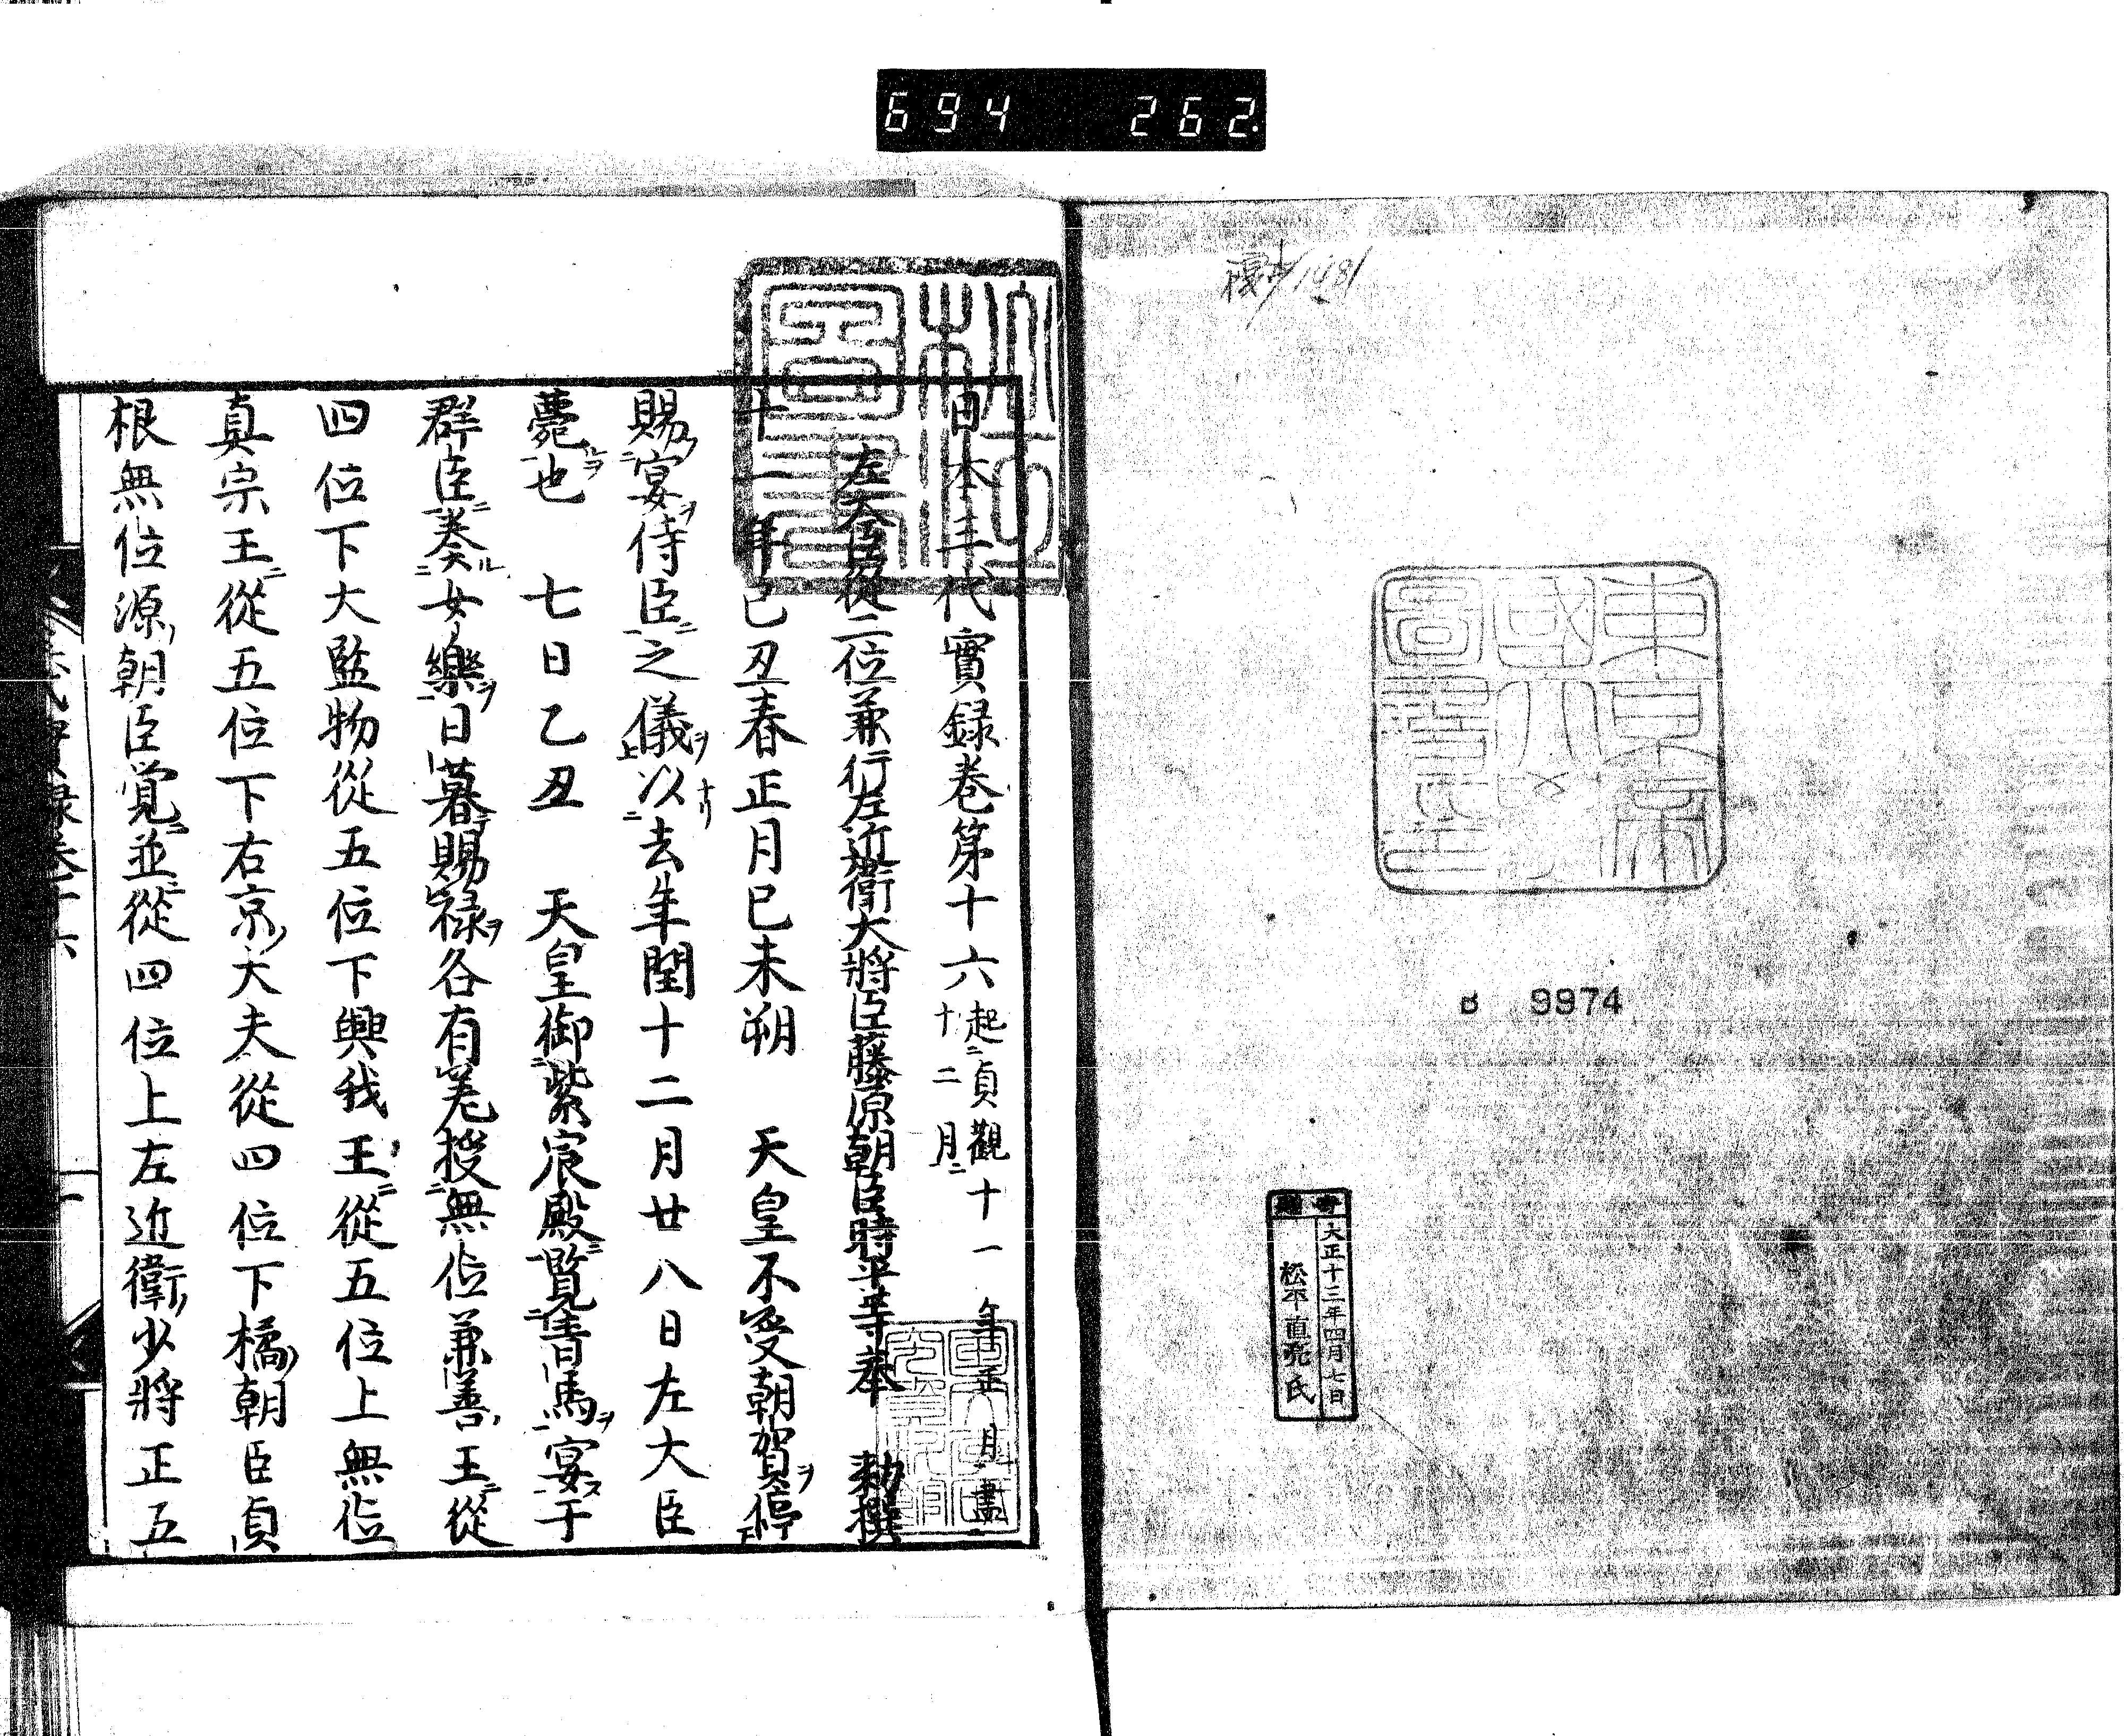 694 262
1481
東京帝國大學圖書
B 9974
大正十三年四月七日
松平直亮氏
日本三代實録巻第十六起貞觀十一年正月盡十二月
左大臣從二位兼行左近衛大將臣藤原朝臣時平等奉 勅撰
十一年己丑春正月己未朔 天皇不受朝賀ヲ停
賜宴ヲ侍臣之儀ヲ以去年閏十二月廿八日左大臣
薨也 七日乙丑 天皇御紫宸殿覧青馬ヲ宴于
群臣奏女樂ヲ日暮賜禄ヲ各有差授無位兼善王從
四位下大監物從五位下興我王從五位上無位
真宗王從五位下右京大夫從四位下橘朝臣貞
根無位源朝臣覚並從四位上左近衛少將正五
代實録巻十六